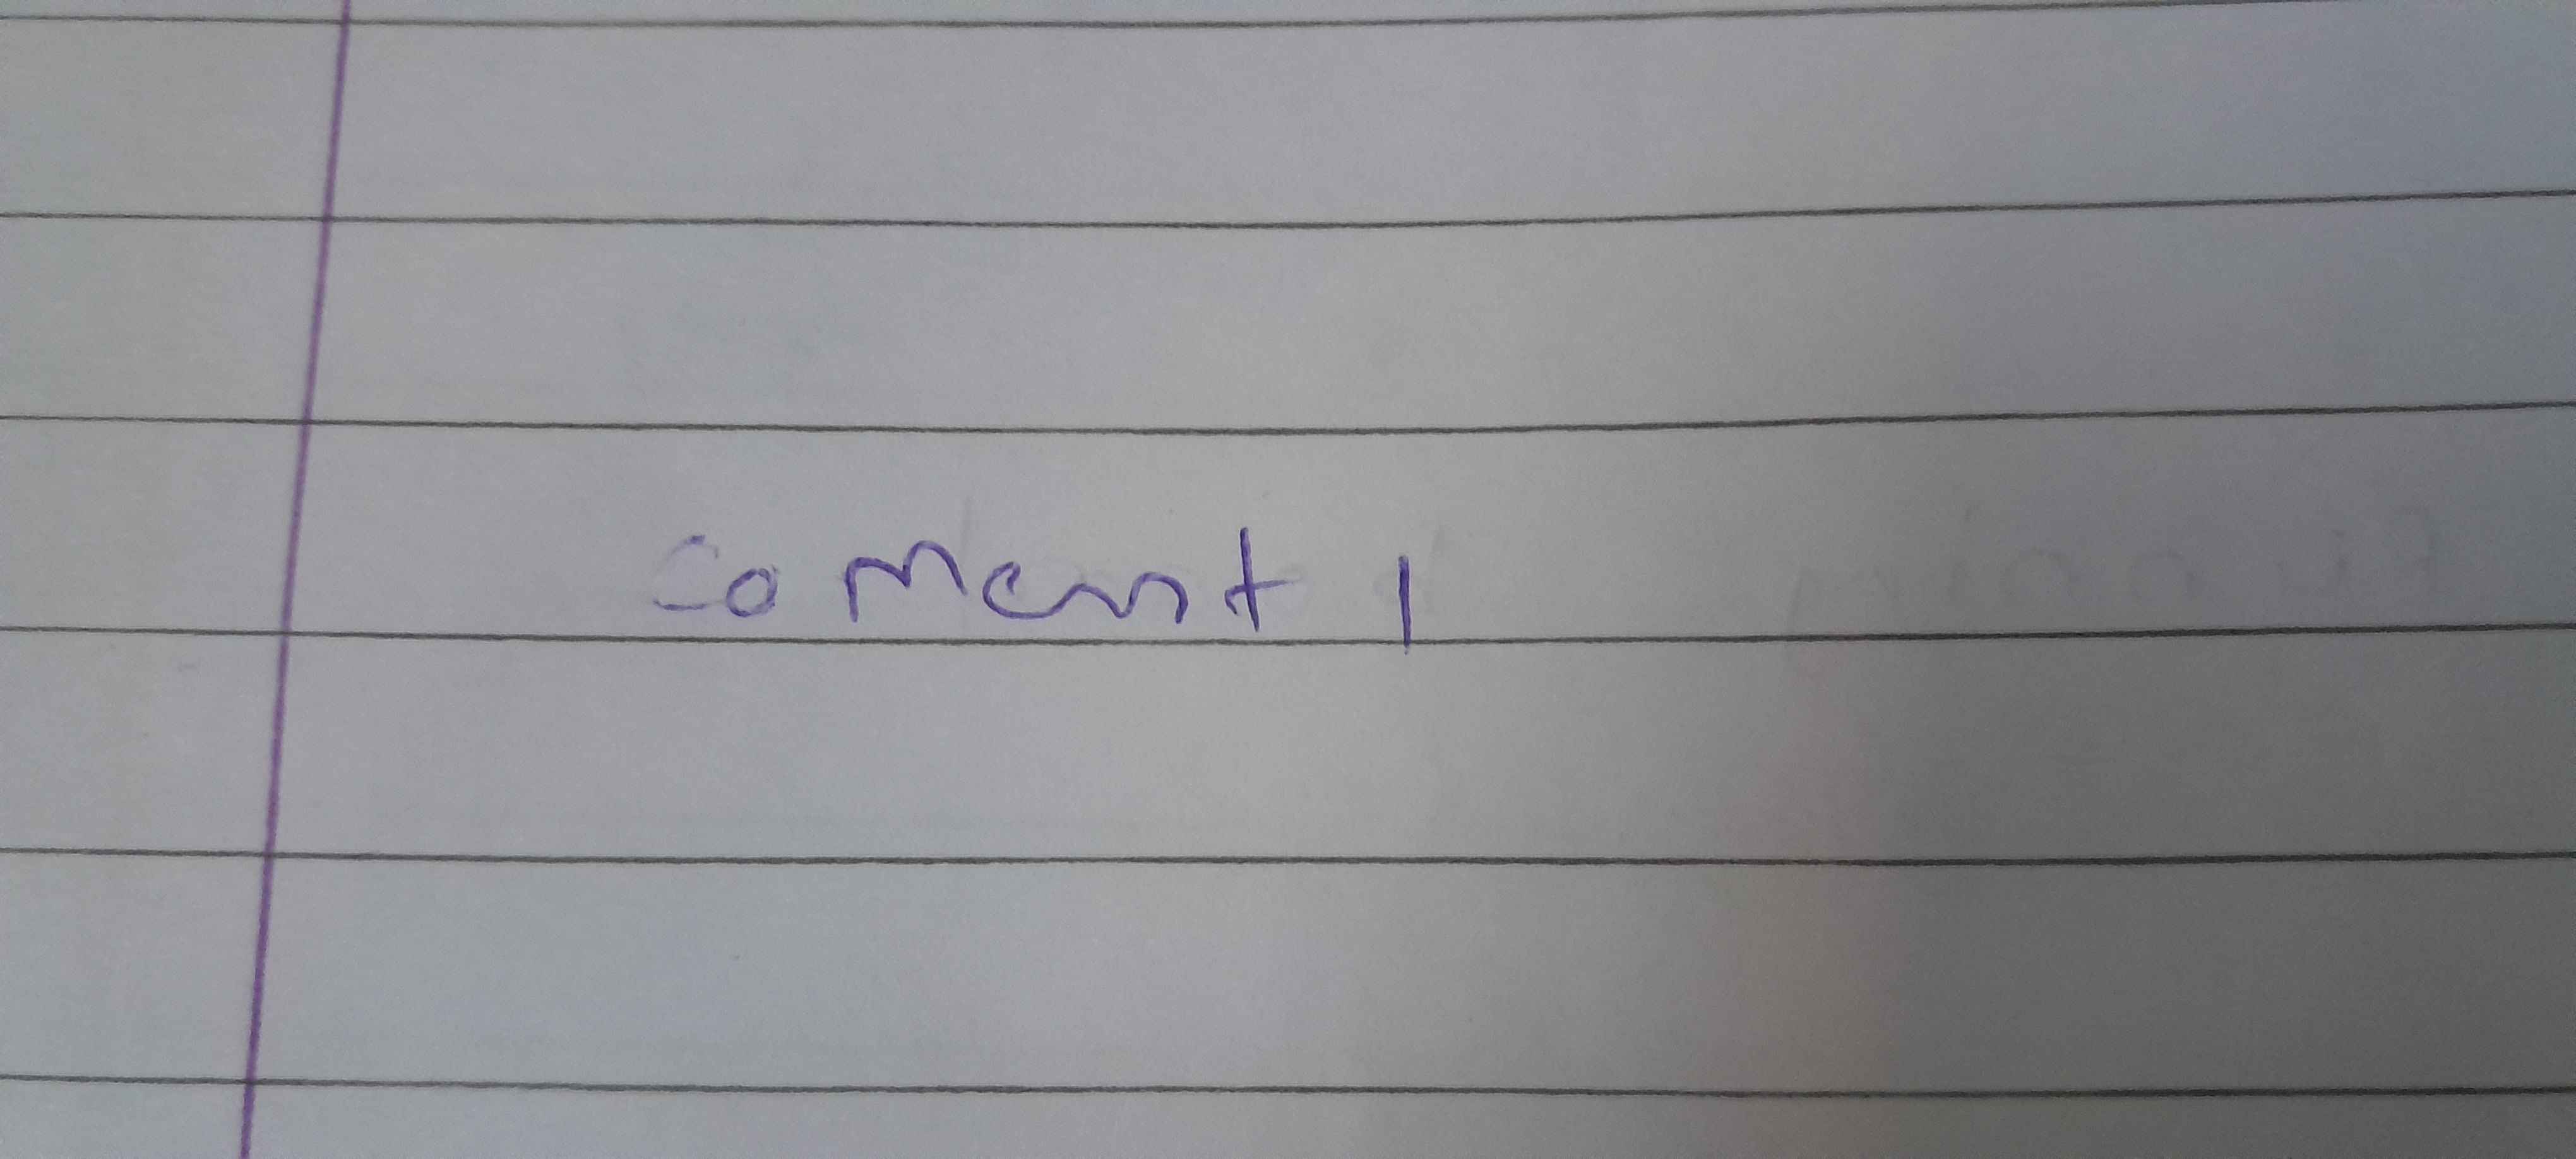 coment 1